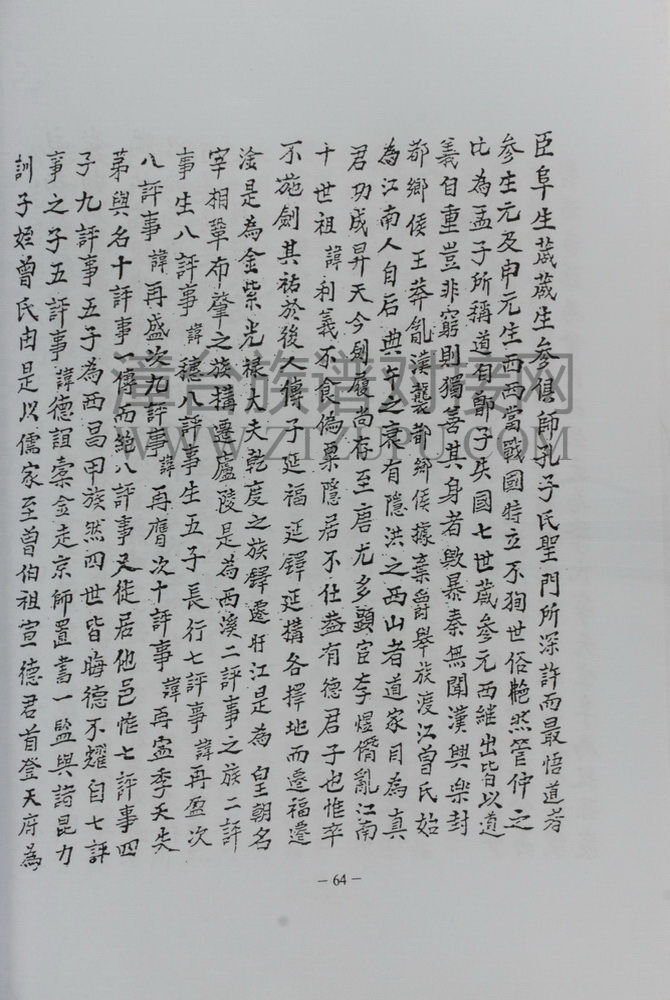 臣阜生蒧蒧生參俱師孔子氏聖門所深許而最悟道者
參生元及申元生西西當戰國特立不狥世俗艴然管仲之
比為孟子所稱道自鄫子失國七世蒧參元西繼出皆以道
義自重豈非窮則獨善其身者歟暴秦無聞漢興樂封
都鄉侯王莽亂漢襲都鄉侯據棄爵舉族渡江曾氏始
為江南人自后典午之衰有隱洪之西山者道家目為真
君功成昇天今劍履尚存至唐尤多顯宦李煜僭亂江南
十世祖諱利義不食偽粟隱居不仕葢有德君子也惟卒
不施劍其祐於後人傳子延福延鐸延搆各擇地而遷福遷
淦是為金紫光禄大夫乾度之族鐸遷盱江是為皇朝名
宰相鞏布肇之族搆遷廬陵是為西溪二評事之族二評
事生八評事諱穗八評事生五子長行七評事諱再盈次
八評事諱再盛次九評事諱再膺次十評事諱再寍季夭失
苐與名十評事一傳而絕八評事又徙居他邑惟七評事四
子九評事五子為西昌甲族然四世皆晦德不耀自七評
事之子五評事諱德誼槖金走京師置書一監與諸昆力
訓子姪曾氏由是以儒家至曾伯祖宣德君首登天府為
-64-
產台族谱对接网
WWW.ZTZUPU.COM